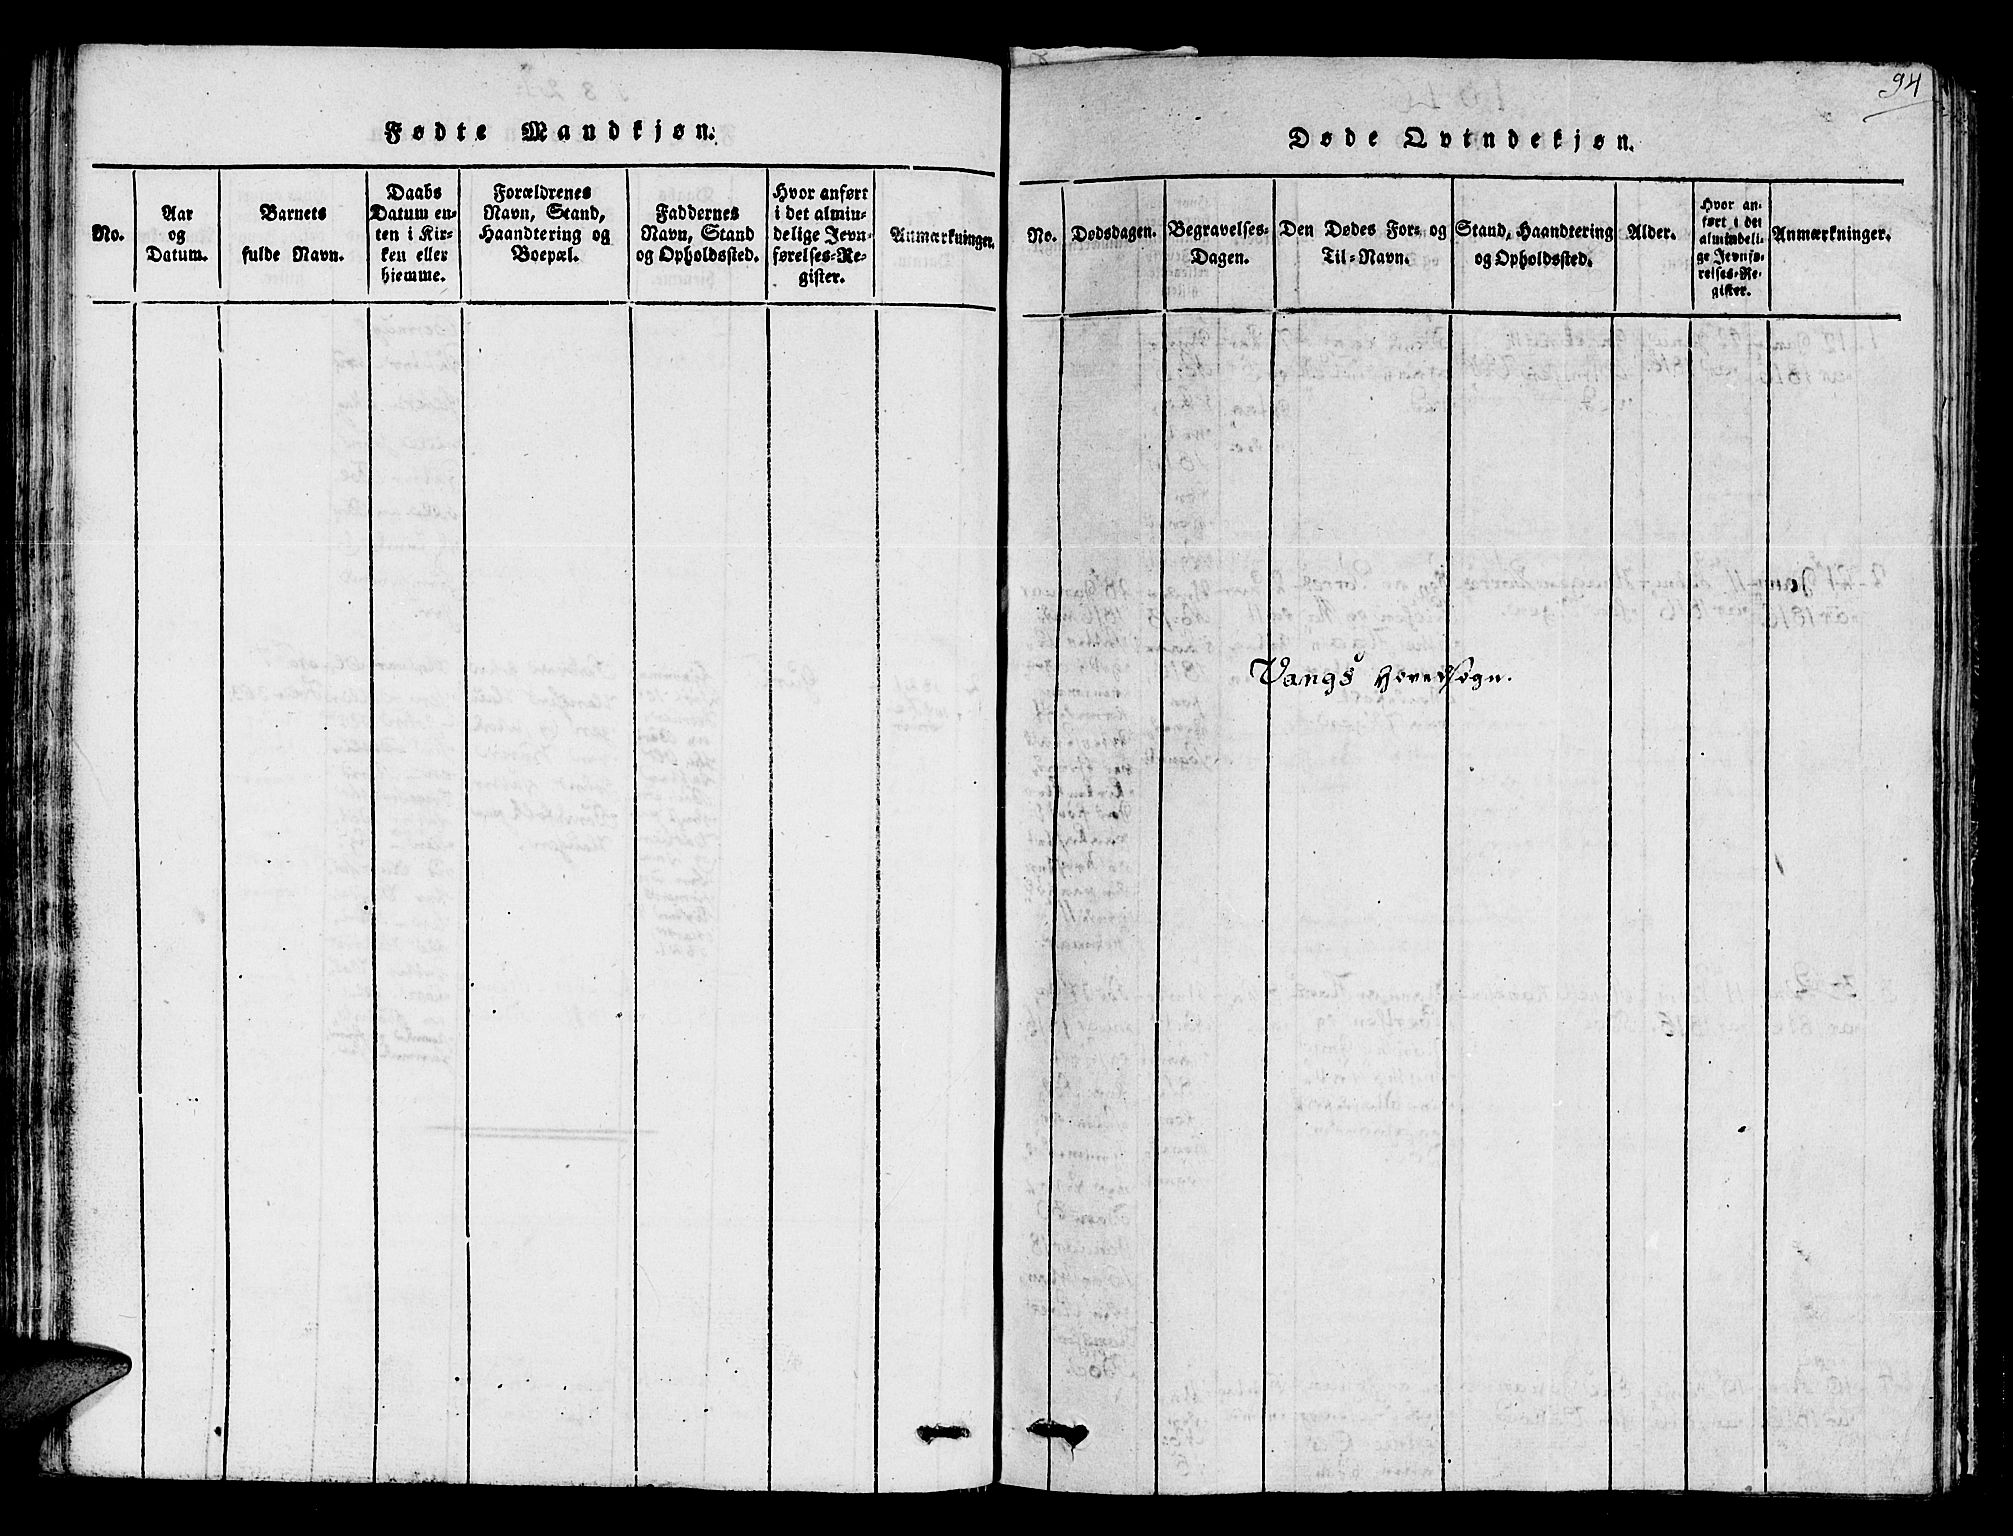 Fødte Mandkjøn.
No.
Aar
og
Datum.
Barnets
fulde Navn.
Daabs
Datum en-
ten i Kir-
ken eller
hjemme.
Forældrenes
Navn, Stand,
Haandtering og
Boepæl.
Faddernes
Navn, Stand
og Opholdssted.
Hvor anført
i det almin-
delige Jevn-
førelses-Re-
gister.
Anmærkninger.
94
Døde Qvindekjøn.
No.
Dødsdagen.
Begravelses-
Dagen.
Den Dødes For- og
Til-Navn.
Stand, Haandtering
og Opholdssted.
Alder.
Hvor an-
ført i det
almindeli-
ge Jevnfø-
relses-Re-
gister.
Anmærkninger.
Vangs Hovedsogn.